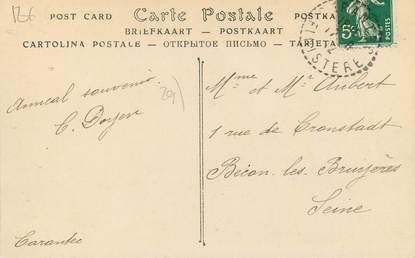 POST CARD Carte Postale POSTKA
BRIEFKAART — POSTKAART
CARTOLINA POSTALE — ОТКРЫТОЕ ПИСЬМО — TARJETA
5c
POSTES
ISTERE
Amical souvenir
Mme et Mr Aubert
1 rue de Cronstadt
Bécon-les-Bruyères
Seine
Carantec